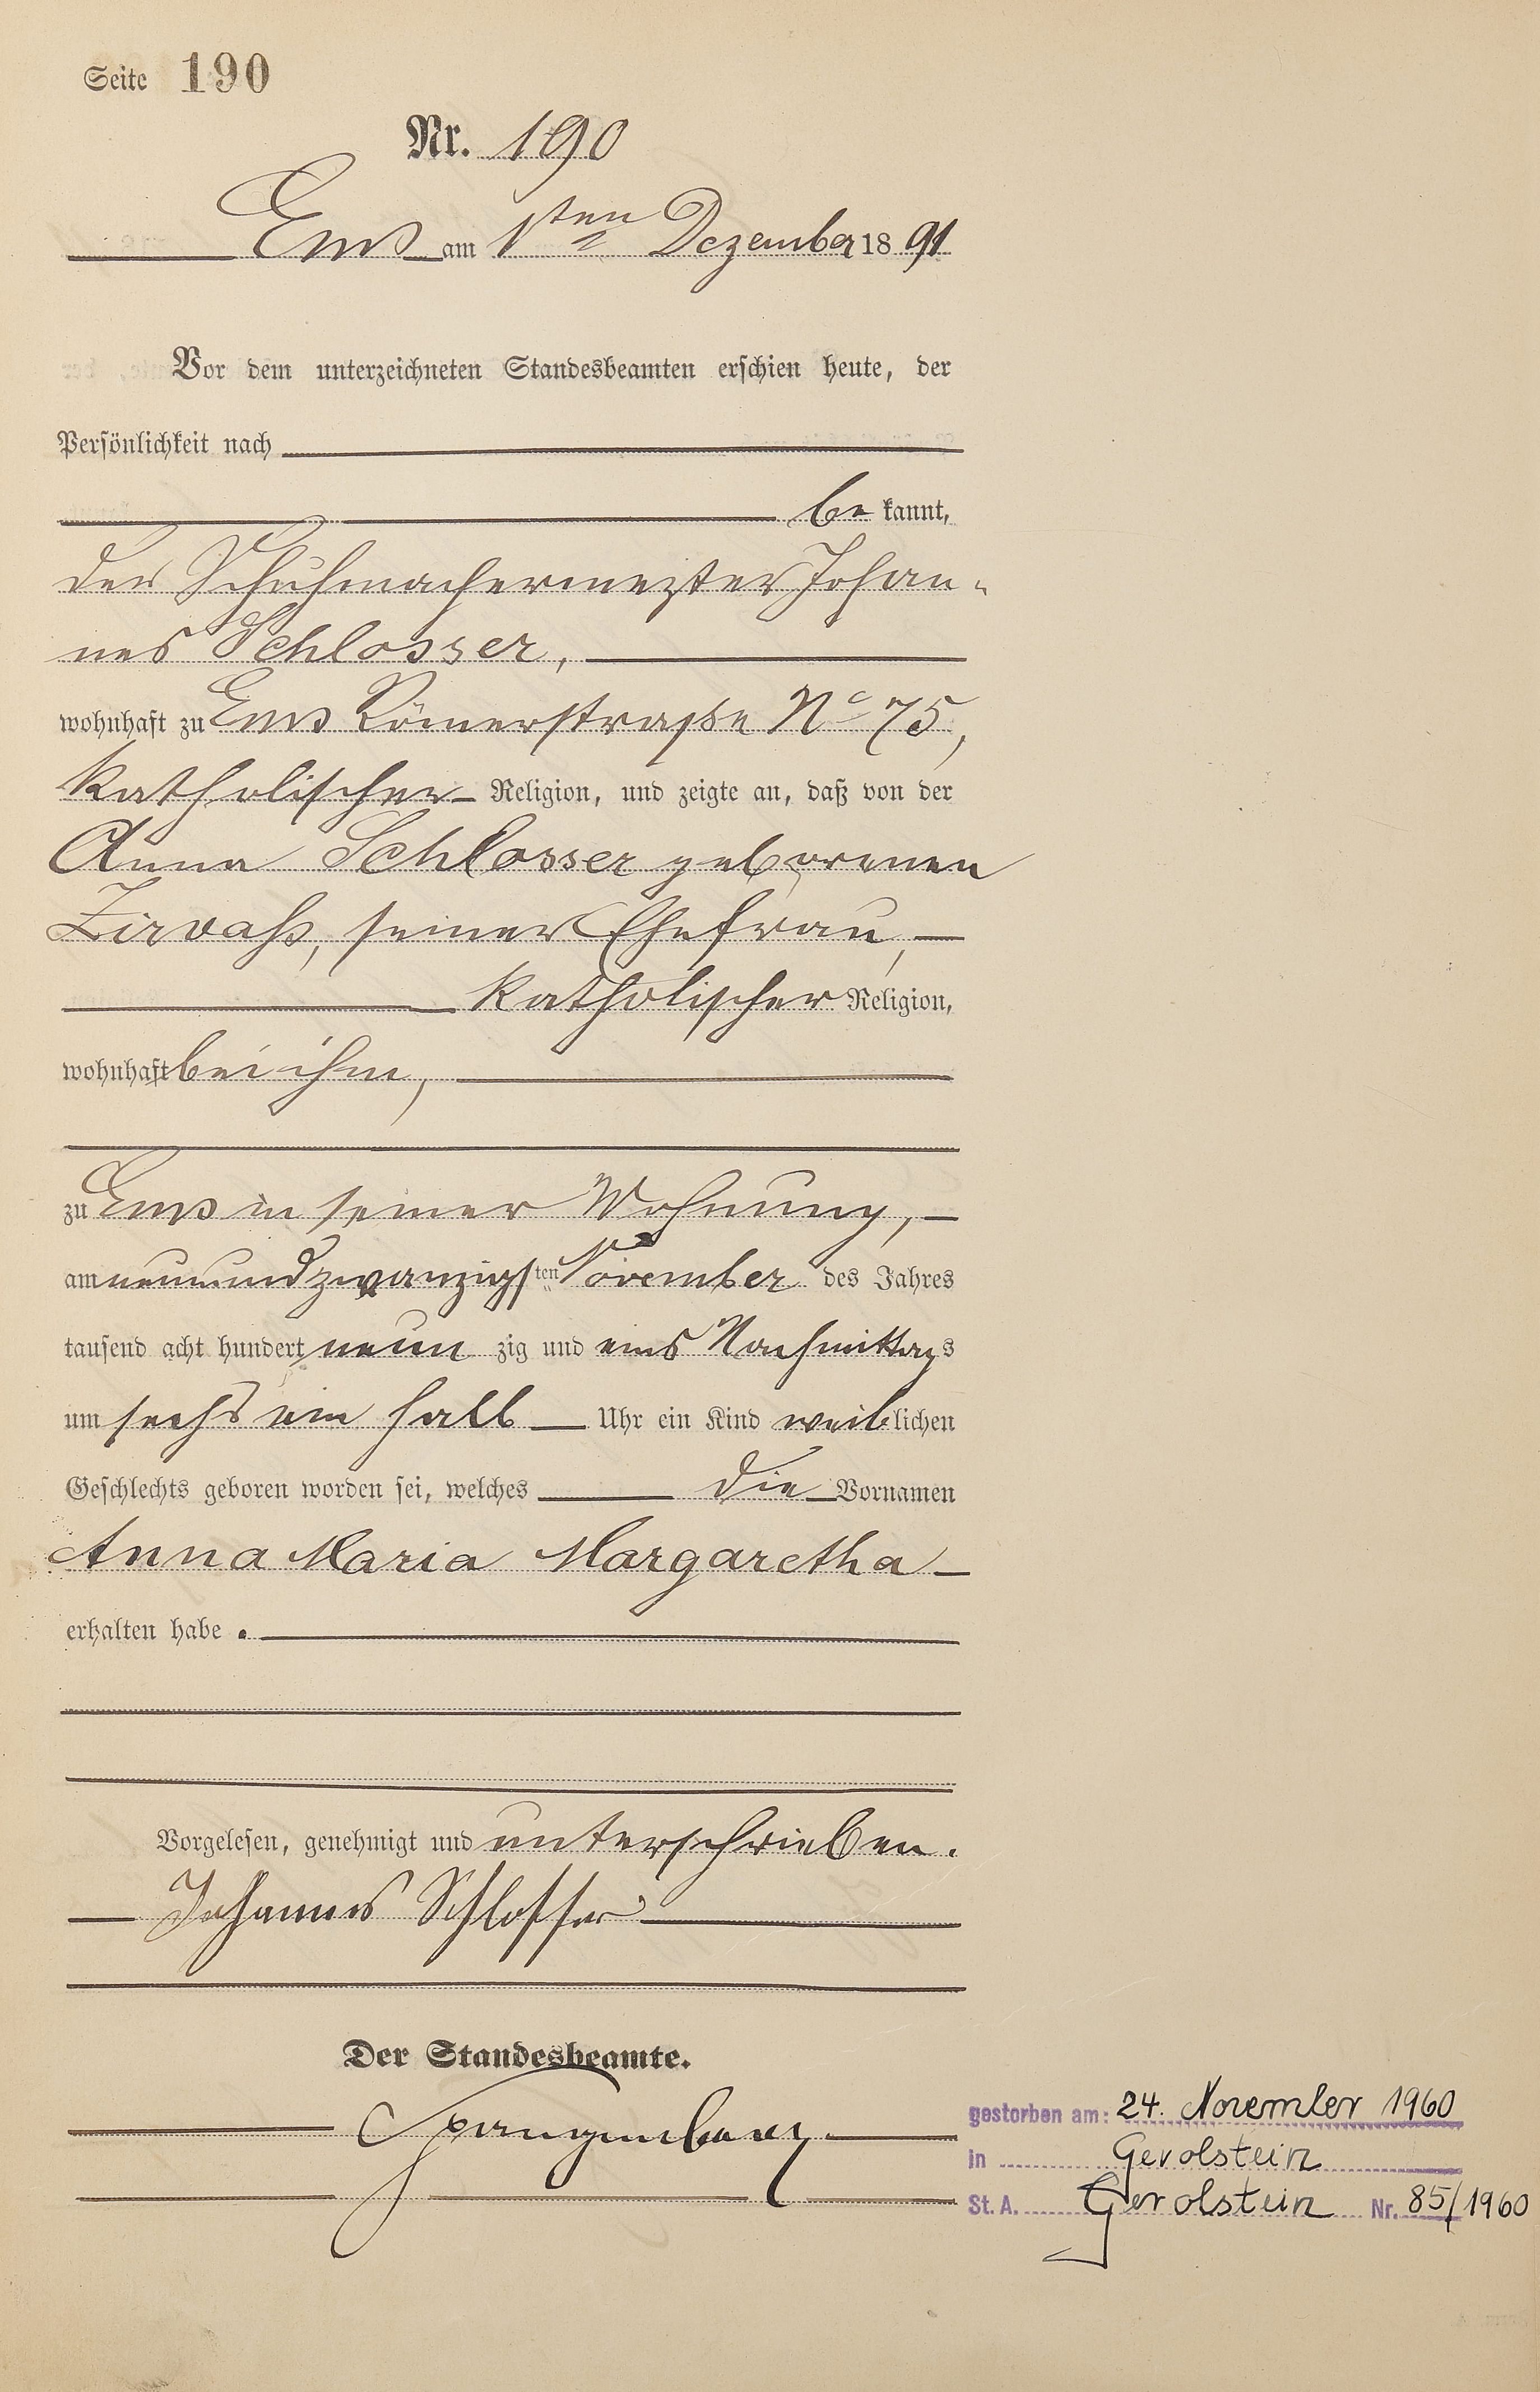 Seite 190
Nr. 190
Ems am 1ten Dezember 1891
Vor dem unterzeichneten Standesbeamten erschien heute, der
Persönlichkeit nach
bekannt,
der Schuhmachermeister Johan-
nes Schlosser,
wohnhaft zu Ems Römerstraße No 75,
katholischer Religion, und zeigte an, daß von der
Anna Schlosser geborenen
Zirvaß, seiner Ehefrau,
katholischer Religion,
wohnhaft bei ihm,
zu Ems in seiner Wohnung,
am neunundzwanzigsten November des Jahres
tausend acht hundert neunzig und eins Nachmittags
um sechs ein halb Uhr ein Kind weiblichen
Geschlechts geboren worden sei, welches die Vornamen
Anna Maria Margaretha
erhalten habe.
Vorgelesen, genehmigt und unterschrieben.
Johannes Schlosser
Der Standesbeamte.
gestorben am: 24. November 1960
in Gerolstein
St. A. Gerolstein Nr. 85/1960